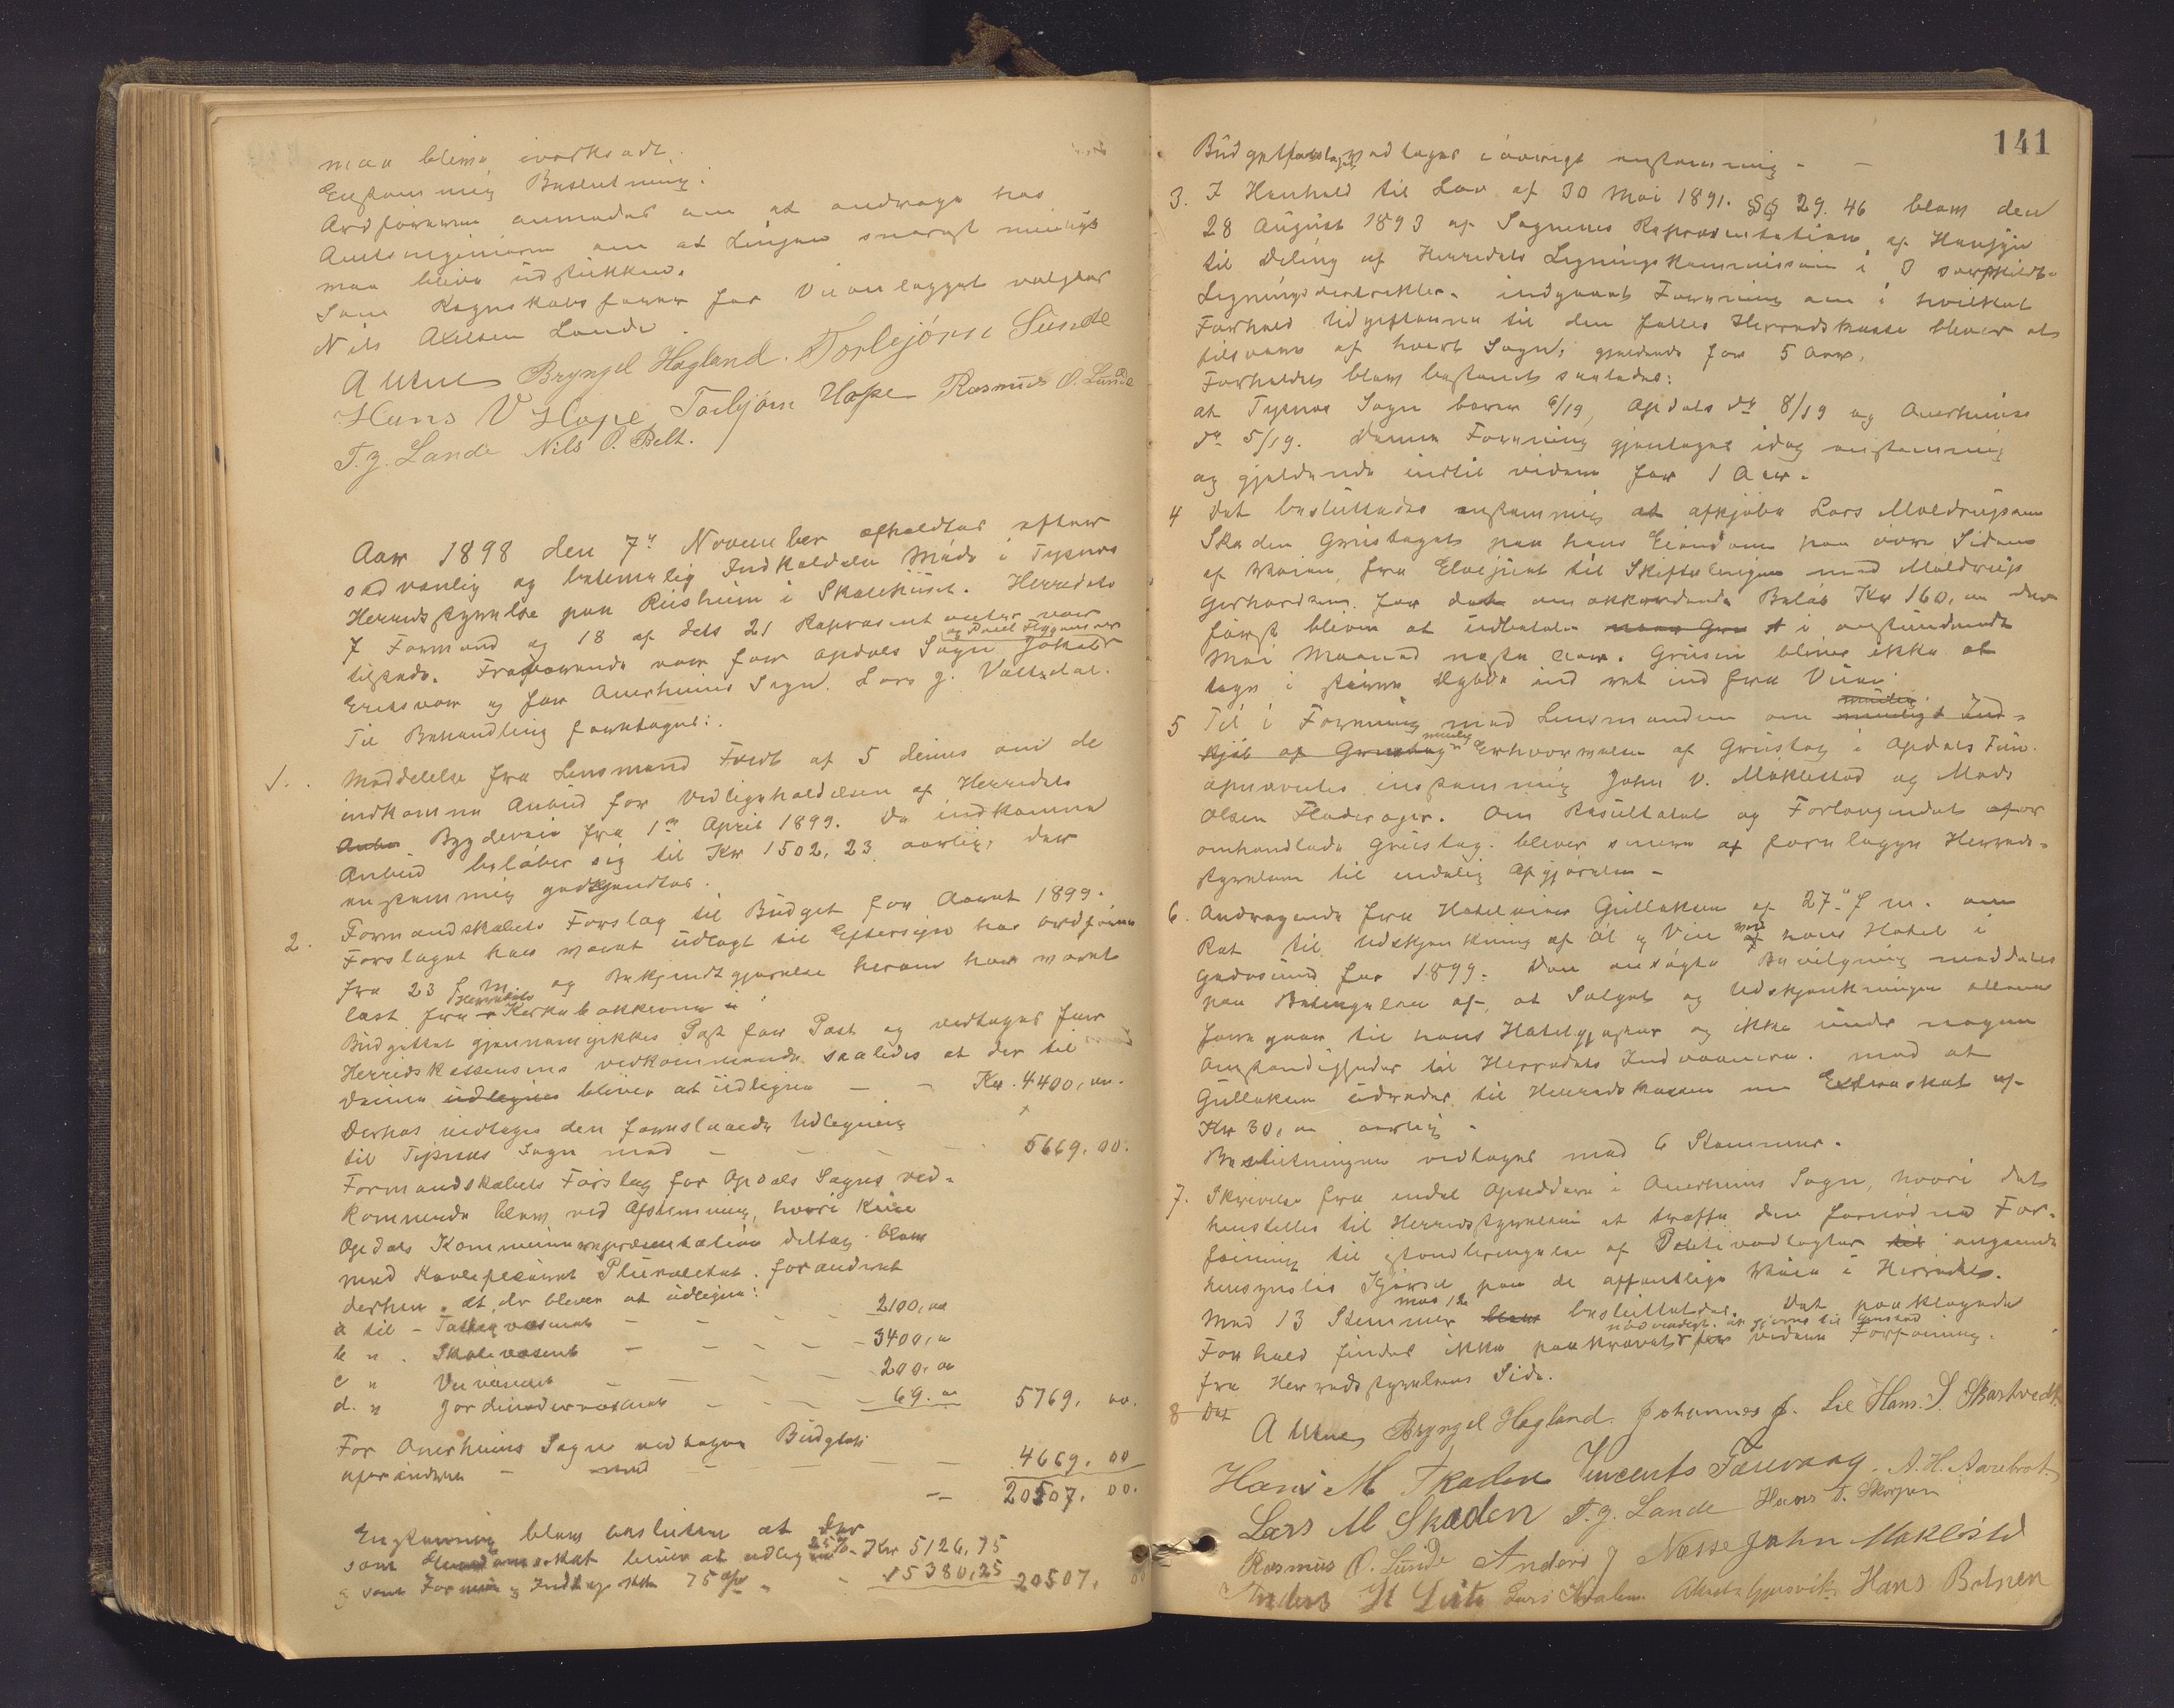 maa blive iverksadt.
Enstemmig Beslutning:
Ordføreren anmodes om at andrage hos
Amtsingeniøren om at Linjen snarest muligt
maa blive udstukken.
Som Regnskabsfører for Veianlegget valgtes
Nils Axelsen Lande.
A Uene Brynjel Hagland. Torbjørn Sunde
Hans V Hope Torbjørn Hope Rasmus O. Lunde
T. J. Lande Nils O. Belt.
Aar 1898 den 7de November afholdtes efter
sedvanlig og betimelig Indkaldelse Møde i Tysnes
Herredsstyrelse paa Reisheim i Skolehuset. Herredets
7 Formend og 18 af dets 21 Repræsentanter var
tilstede. Fraværende var for Opdals Sogn Jakob
Ericksvær og for Onerheims Sogn. Lars J. Vattedal.
Til Behandling foretoges:
1. Meddelelse fra Lensmand Fredt af 5 dennes om de
indkomne Anbud for Vedligeholdelsen af Herredets
Anbu Bygdeveie fra 1ste April 1899. De indkomne
Anbud beløber sig til Kr 1502,23 aarlig, der
enstemmig godkjendtes.
2. Formandskabets Forslag til Budget for Aaret 1899.
Forslaget har været udlagt til Eftersyn hos Ordføreren
fra 23 f. M. og Bekjendtgjørelse herom har været
læst fra Herredets Kirkebakkerne
Budgettet gjennemgikkes Post for Post og vedtoges for
Herredskassens vedkommende saaledes at der til
denne udlignes bliver at udligne — - Kr. 4400,00.
Derhos vedtoges den foreslaaede Udligning
til Tysnes Sogn med - - - - 5669,00.
Formandskabets Forslag for Opdals Sogns ved-
kommende blev ved Afstemning, hvori kun
Opdals Kommunerepræsentation deltog blev
med Pluralitet forandret
derhen, at der bliver at udligne:
a til - Fattigvæsenet - - - 2100,00
b " . Skolevæsenet - - - - 3400,00
c " Veivæsenet - - - - 200,00
d. " Jordmodervæsenet - - - 69.00 5769,00.
For Onerheims Sogn vedtoges Budgettet
uforandret - med - - - 4669,00
-- 20507,00.
Enstemmig blev besluttet at der
som Eiendomsskat bliver at udligne 25% - Kr 5126,75
og som Formue og Indtægtsskat 75 % " - 15380,25 20507,00
141
Budgetforslaget vedtoges iøvrigt enstemmig. -
3. I Henhold til Lov af 30 Mai 1891. §§ 29. 46 blev den
28 August 1893 af Sognenes Representation, af Hensyn
til Deling af Herredets Ligningskommission i 3 særskildte
Ligningsdistrikter, indgaaet Forening om i hvilket
Forhold Udgifterne til den felles Herredskasse bliver at
tilsvare af hvert Sogn, gjeldende for 5 Aar.
Forholdet blev bestemt saaledes:
at Tysnes Sogn bærer 6/19, Opdals do 8/19 og Onerheims
do 5/19. Denne Forening gjentoges idag enstemmig
og gjeldende indtil videre for 1 Aar.
4 Det besluttedes enstemmig at afkjøbe Lars Meldrupsen
Skaden Grustaget paa hans Eiendom paa øvre Siden
af Veien, fra til Skiftelinjen med Meldrup
Gerhardsen for det omakkorderede Beløb Kr 160,00 der
først bliver at udbetale i anstundende
Mai Maaned neste Aar. Grusen bliver ikke at
tage i større Dybde end ret ind fra Veien.
5 Til i Forening med Lensmanden om mulig muligt Ind-
kjøb af Grustag mulig Erhvervelse af Grustag i Opdals Fin.
opnævntes enstemmig John V. Møklestad og Mads
Olsen Flaterager. Om Resultatet og Forlangendet for
omhandlede Grustag bliver senere at forelægge Herreds-
styrelsen til endelig Afgjørelse -
6. Andragende fra Hoteleier Gullaksen af 27de f m. om
Ret til Udskjenkning af Øl og Vin ved hans Hotel i
Godøsund for 1899. Den ansøgte Bevilgning meddeles
paa Betingelse af, at Salget og Udskjenkningen allene
foregaar til hans Hotelgjester og ikke under nogen
Omstendigheder til Herredets Indvaanere. mod at
Gullaksen udreder til Herredskassen en Extraskat af
Kr 30,00 aarlig.
Beslutningen vedtoges med 6 Stemmer.
7. Skrivelse fra endel Opsiddere i Onerheims Sogn, hvori det
henstilles til Herredsstyrelsen at treffe den fornødne For-
føining til istandbringelse af Politivedtegter til angaaende
hensynsløs Kjørsel paa de offentlige Veie i Herredet.
Med 13 Stemmer mod 12 blev besluttedes. Det paaklagede
Forhold findes ikke paakrævet nødvendigt at gjøres til Gjenstand for videre Forføining
fra Herredsstyrelsens Side.
8 Det
A Uene, Brynjel Hagland. Johannes J. Lie Hans. S. Skartvedt
Hans M Skaden Vincents Færevaag. A. H. Aarebrot
Lars M Skaden T. J. Lande Hans T. Skorpen
Rasmus O. Lunde Anders J Nesse John Møklestd
Anders H Leite Lars Kvalem. Gjersvik. Hans Botnen